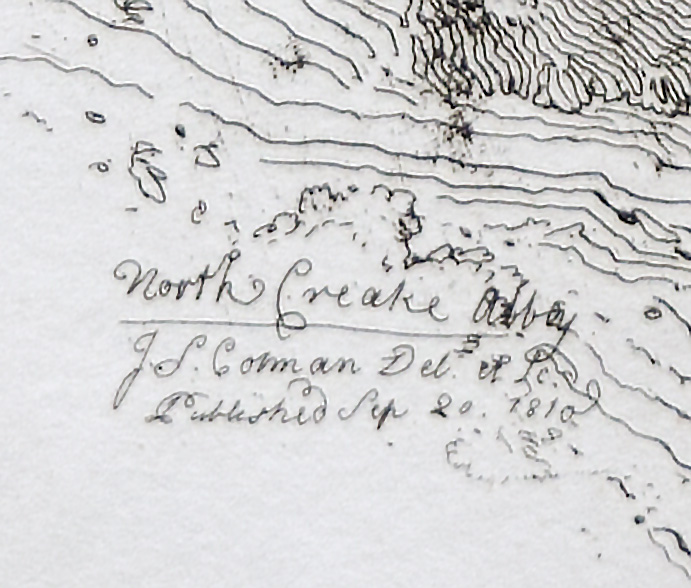 North Creake Abbey
J. S. Cotman Del. et Sc.
Published Sep 20. 1810